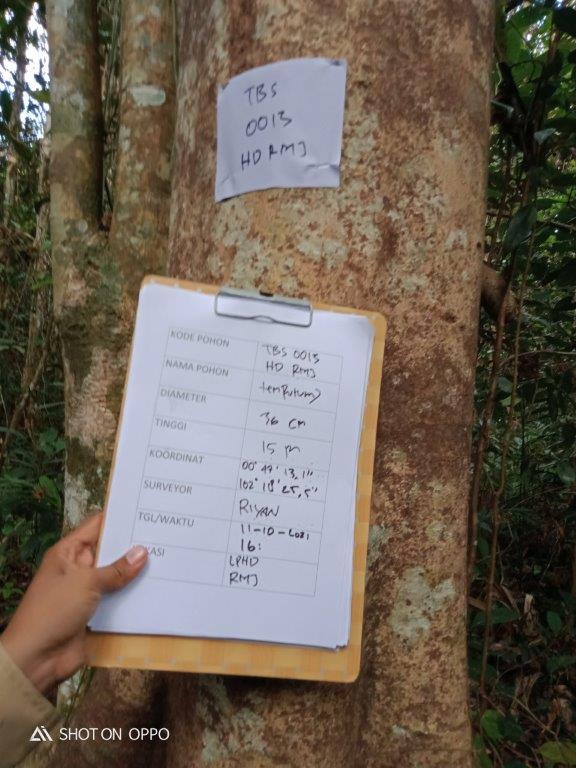 TBS
0013
HD RMJ
KODE POHON TBS 0013
HD RMJ
NAMA POHON
DIAMETER 36 CM
TINGGI 15 m
KOORDINAT 00° 49' 13,1"
102° 18' 25,5"
SURVEYOR RIYAN
TGL/WAKTU 11-10-2021
16:
ASI LPHD
RMJ
SHOT ON OPPO